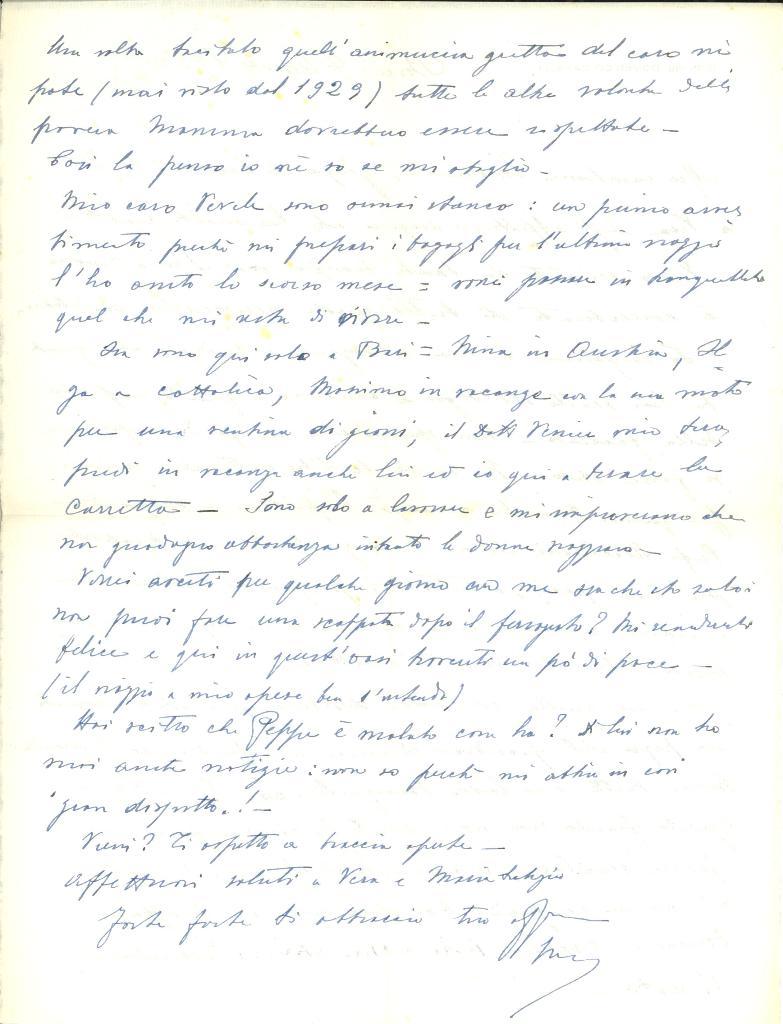 Una volta tacitato quell'animuccia gretta del caro ni
pote (mai visto dal 1929) tutte le altre volontà della
povera Mamma dovrebbero essere rispettate —
Così la penso io né so se mi sbaglio —
Mio caro sono ormai stanco: un primo avver
timento perché mi prepari i bagagli per l'ultimo viaggio
l'ho avuto lo scorso mese = vorrei passare in tranquillità
quel che mi resta di vivere —
sono qui solo a Bari = Nina in Austria, Il
ga a Cattolica, Massimo in vacanze con la sua moto
per una ventina di giorni, il Dott. mio
in vacanza anche lui ed io qui a tirare la
Carretta — Sono solo a lavorare e mi rimproverano che
non guadagno abbastanza intanto le donne viaggiano —
Vorrei averti per qualche giorno con me sia che sto solo:
non puoi fare una scappata dopo il ferragosto? Mi renderesti
felice e qui in quest'oasi troveresti un pò di pace —
(il viaggio a mie spese ben s'intende)
Hai scritto che Peppe è malato cosa ha? Di lui non ho
mai avute notizie: non so perché mi abbia in così
gran dispetto.! —
Vieni? Ti aspetto a braccia aperte —
Affettuosi saluti a Vera e Maria
Forte forte ti abbraccio tuo aff